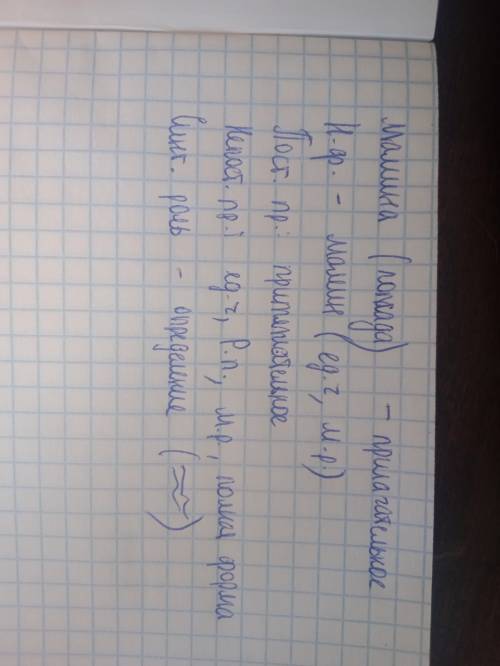 Мамина (попада) – прилагательное
Н.ф. – мамин (ед.ч, м.р)
Пост. пр.: притяжательное
Непост. пр.: ед.ч, Р.п., м.р, полная форма
Синт. роль – определение (